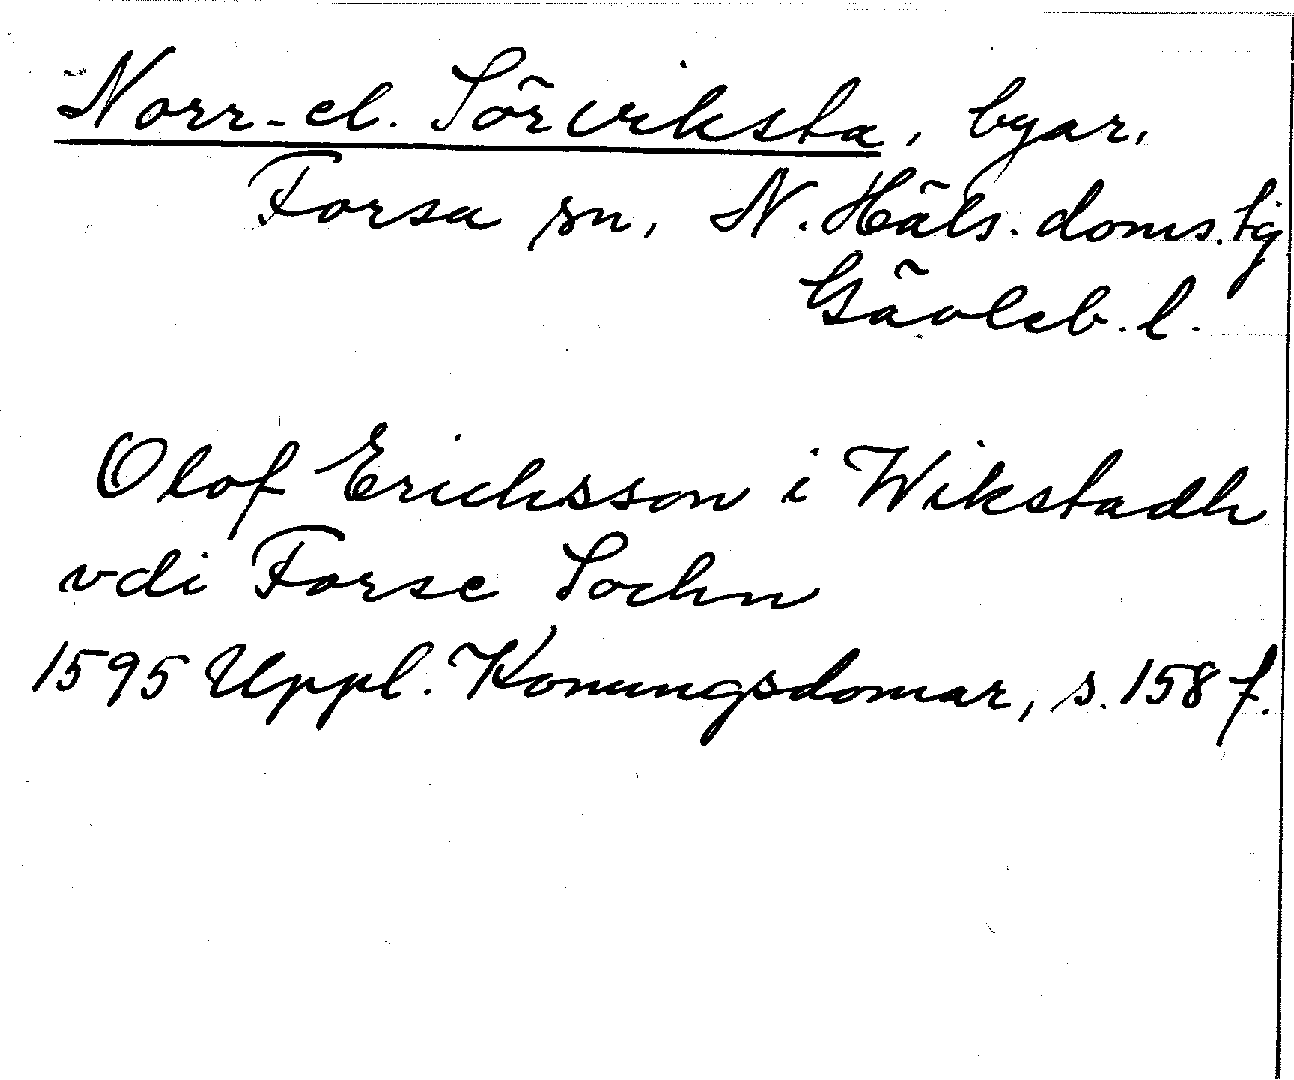 Norr- el. Sörviksta, byar,
Forsa sn, N. Häls. doms. tg
Gävleb. l.
Olof Erichsson i Wikstadh
vdi Forse Sochn
1595 Uppl. Konungsdomar, s. 158 f.